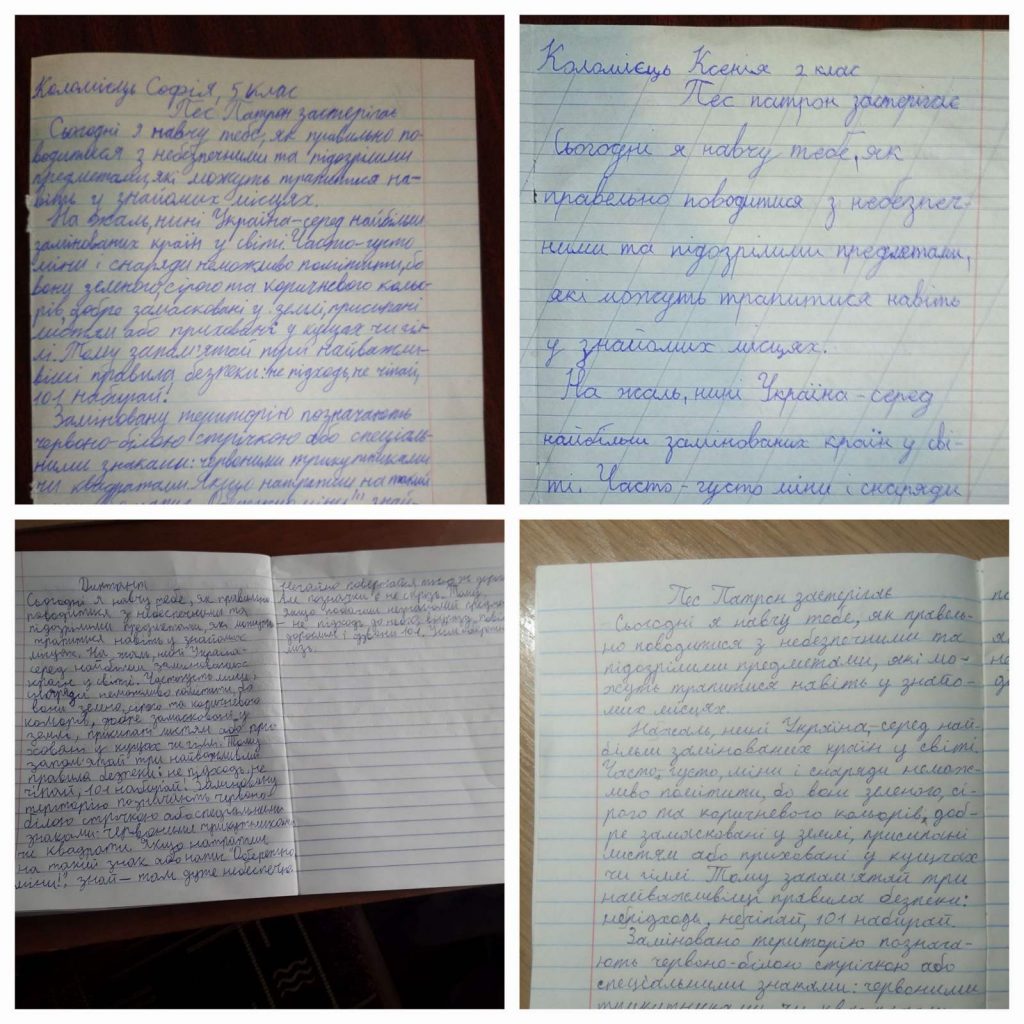 Коломієць Софія, 5 клас
Пес Патрон застерігає
Сьогодні я навчу тебе, як правильно по-
водитися з небезпечними та підозрілими
предметами, які можуть трапитися на-
віть у знайомих місцях.
На жаль, нині Україна-серед найбільш
замінованих країн у світі. Часто-густо
міни і снаряди неможливо помітити, бо
вони зеленого, сірого та коричневого кольо-
рів, добре замасковані у землі, присипані
листям або приховані у кущах чи гіл-
лі. Тому запам'ятай три найважли-
віші правила безпеки: не підходь, не чіпай,
101 набирай!
Заміновану територію позначають
червоно-білою стрічкою або спеціаль-
ними знаками: червоними трикутниками
чи квадратами. Якщо натрапиш на такий
Коломієць Ксенія 2 клас
Пес патрон застерігає
Сьогодні я навчу тебе, як
правельно поводитися з небезпеч-
ними та підозрілими предметами,
які можуть трапитися навіть
у знайомих місцях.
На жаль, нині Україна-серед
найбільш замінованих країн у сві-
ті. Часто-густо міни і снаряди
Диктант
Сьогодні я навчу тебе, як правильно
поводитися з небезпечними та
підозрілими предметами, які можуть
трапитися навіть у знайомих
місцях. На жаль, нині Україна-
серед найбільш замінованих
країн у світі. Часто густо міни і
снаряди неможливо помітити, бо
вони зелено, сірого та коричневого
кольорів, добре замасковані у
землі, присипані листям або при-
ховані у кущах чи гіллі. Тому
запам'ятай три найважливіші
правила безпеки: не підходь, не
чіпай, 101 набирай! Заміновану
територію позначають червоно
білою стрічкою або спеціальними
знаками: червоними трикутниками
чи квадрати. Якщо натрапиш
на такий знак або напис "Обережно
міни!", знай — там дуже небезпечно
Негайно повертайся тією ж дорогою
Але позначки є не скрізь. Тому,
якщо побачиш незнайомий предмет
- не підходь до нього,
дорослим і дзвони 101.
Пес Патрон застерігає
Сьогодні я навчу тебе, як правель-
но поводитися з небезпечними та
підозрілими предметами, які мо-
жуть трапитися навіть у знайо-
мих місцях.
Нажаль, нині Україна-серед най-
більш замінованих країн у світі.
Часто, густо, міни і снаряди немож-
ливо помітити, бо вони зеленого, сі-
рого та коричневого кольорів, доб-
ре замасковані у землі, присипані
листям або приховані у кущчах
чи гіллі. Тому запам'ятай три
найважливіщі правила безпеки:
непідходь, нечіпай, 101 набирай.
Заміновано територію познача-
ють червоно-білою стрічкою або
спеціальними знаками: червоними
трикутниками чи